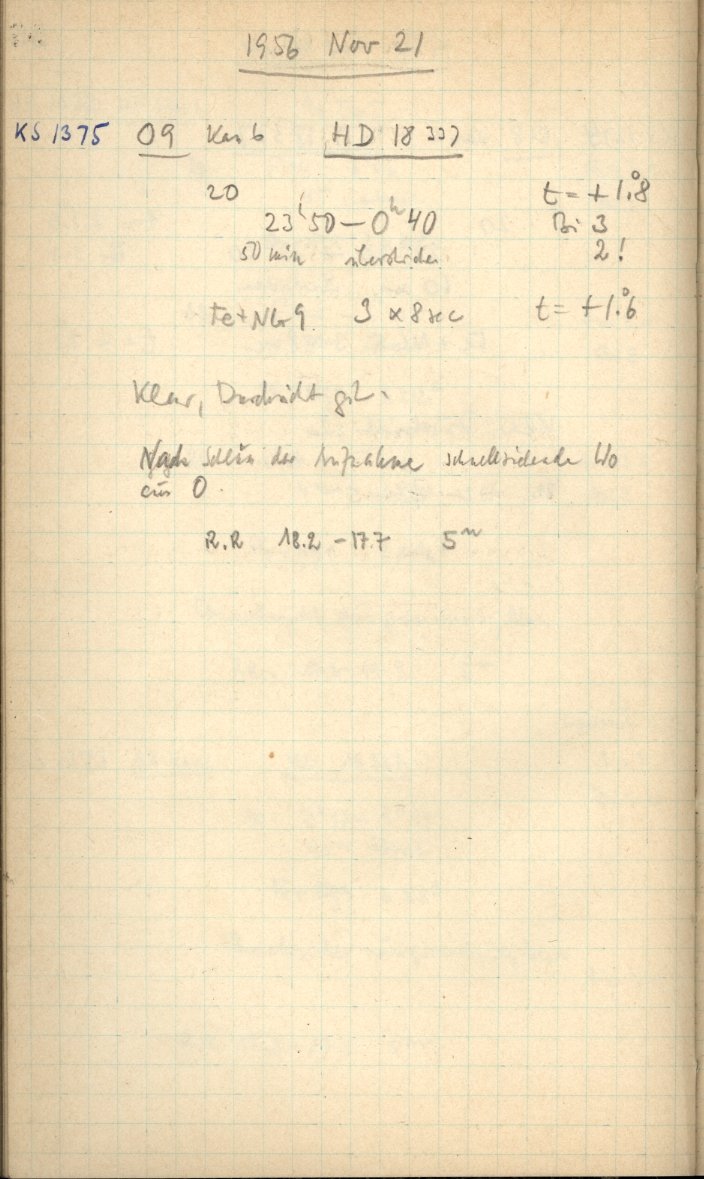 1956 Nov 21
KS 1375 09 Kas 6 HD 18 337
20 t = +1.°8
23ʰ50 — 0ʰ 40 Bi 3
50 min 2!
Fe + NG 9 3 x 8 sec t = +1.°6
Klar, Durchsicht gut.
Nach Schluß der Aufnahme schnellziehende Wo
aus O.
R.R 18.2 - 17.7 5ᵐ